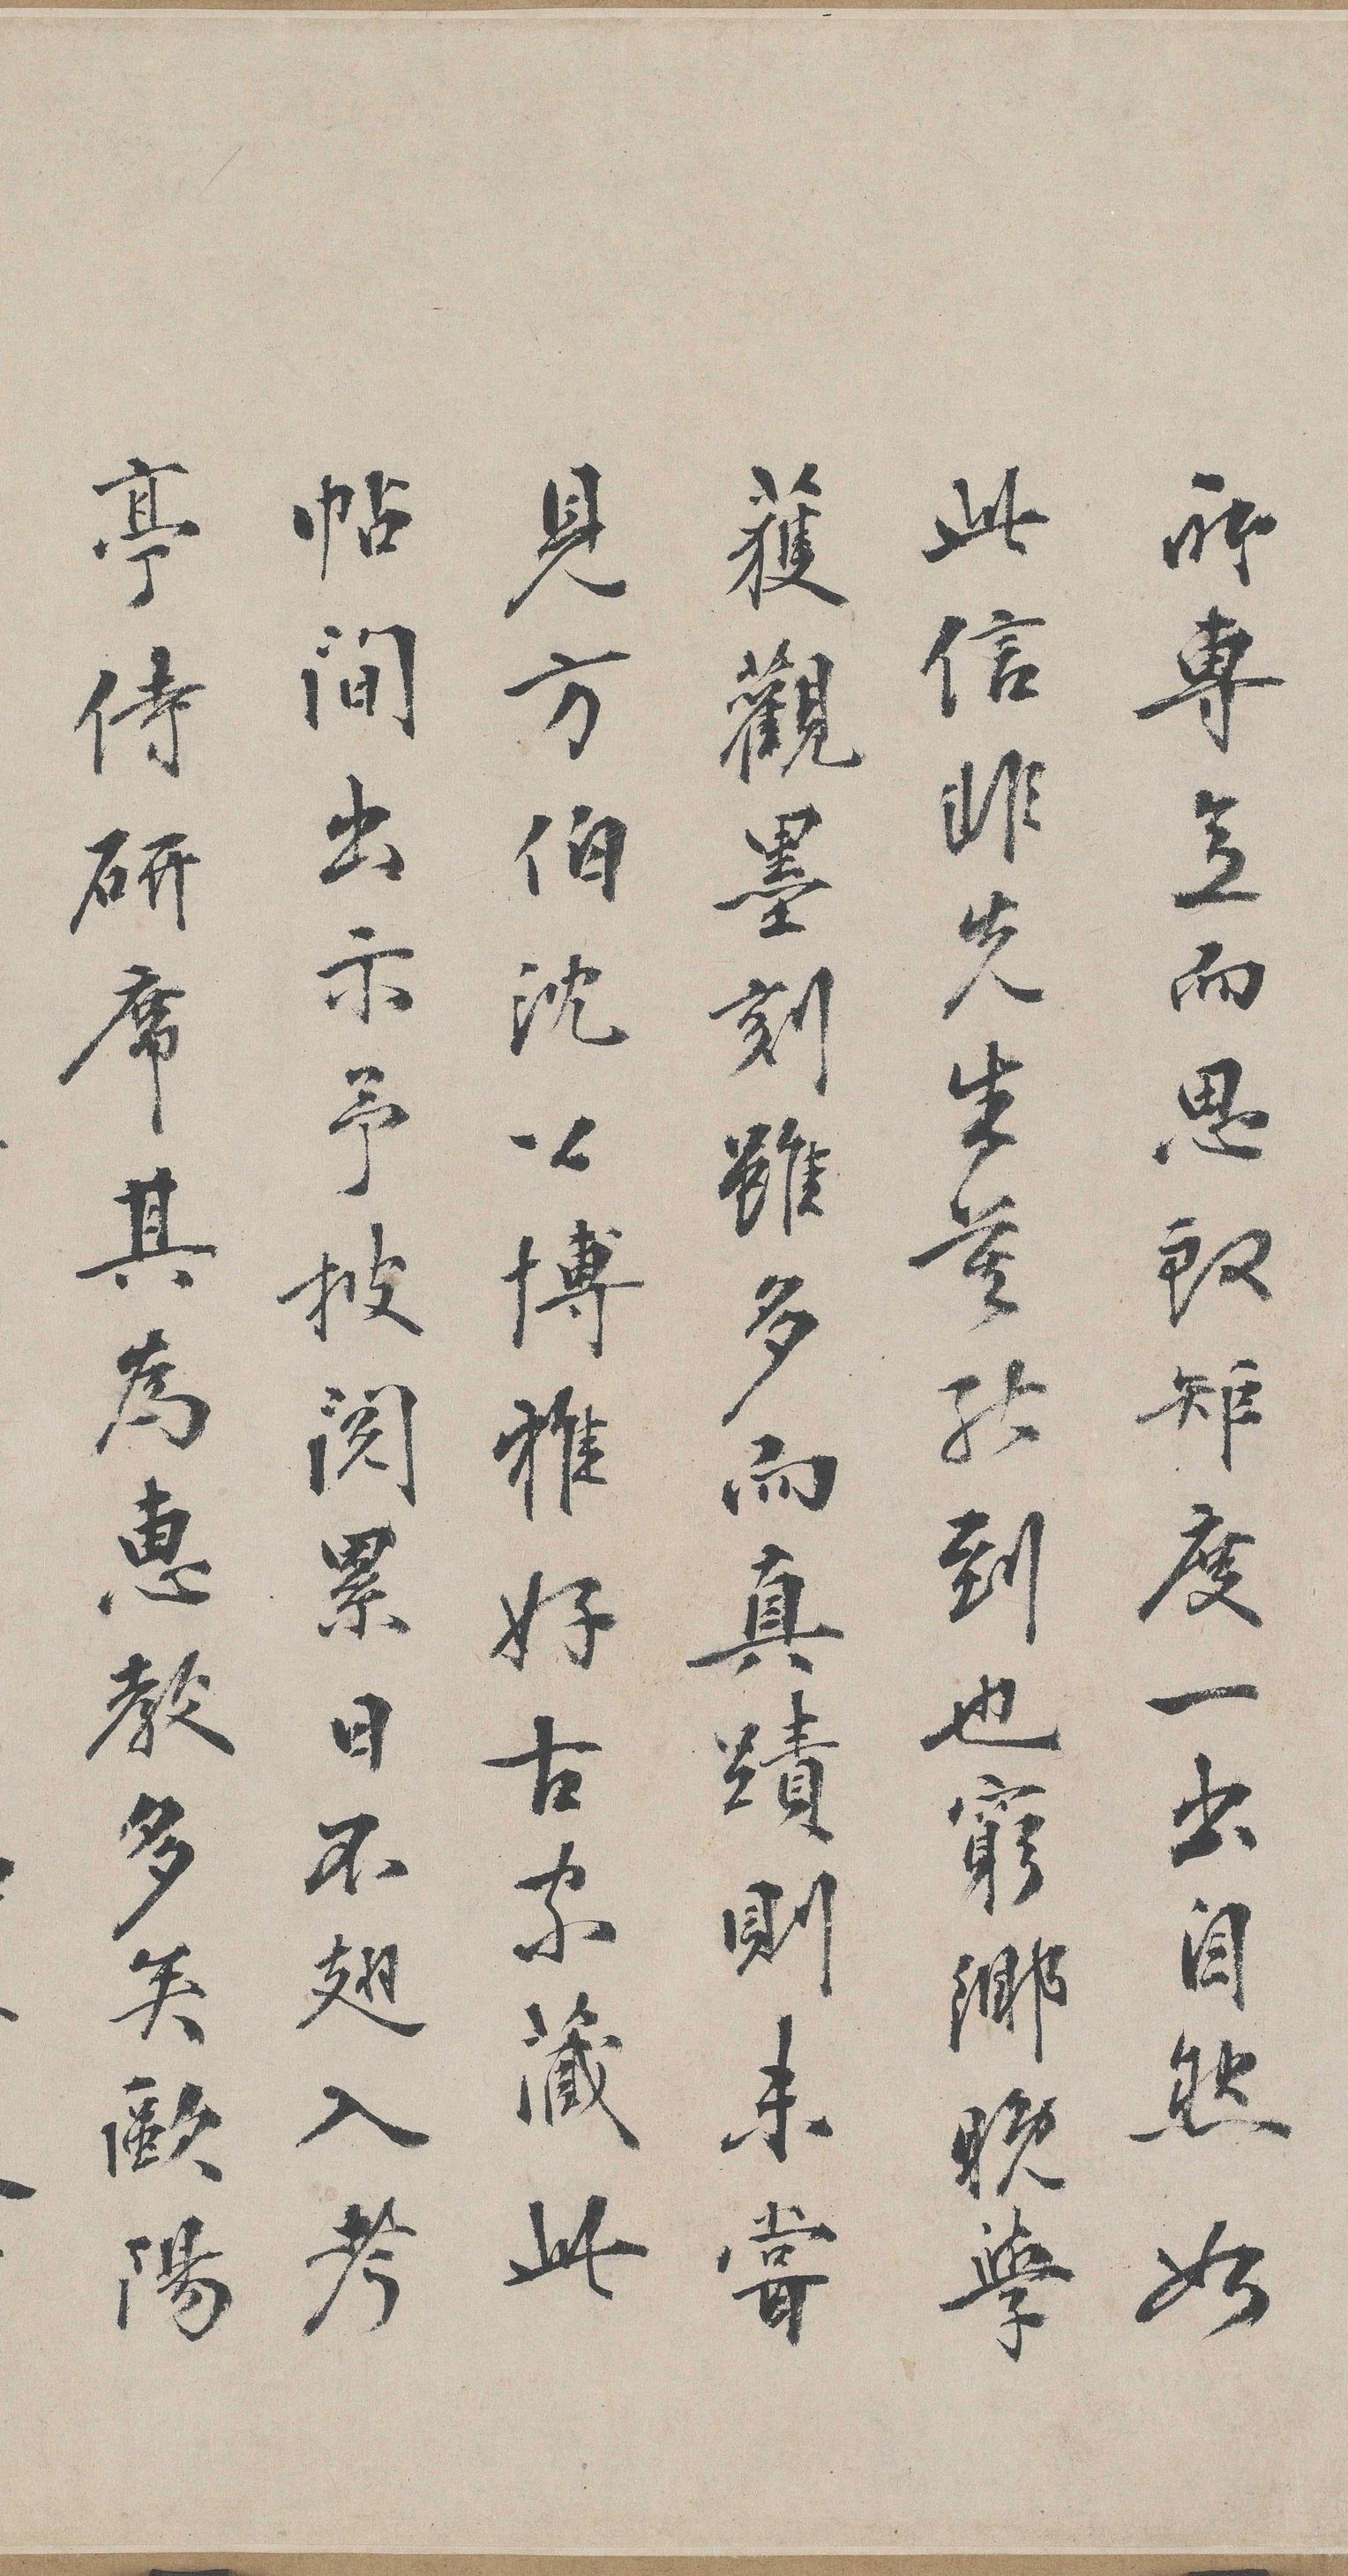 師專立而思取矩度一出自然如
此信非先生莫能到也窮鄉晚學
獲觀墨刻雖多而真蹟則未嘗
見方伯沈公博雅好古家藏此
帖間出示予披閱累日不翅入考
亭侍研席其為惠教多矣歐陽